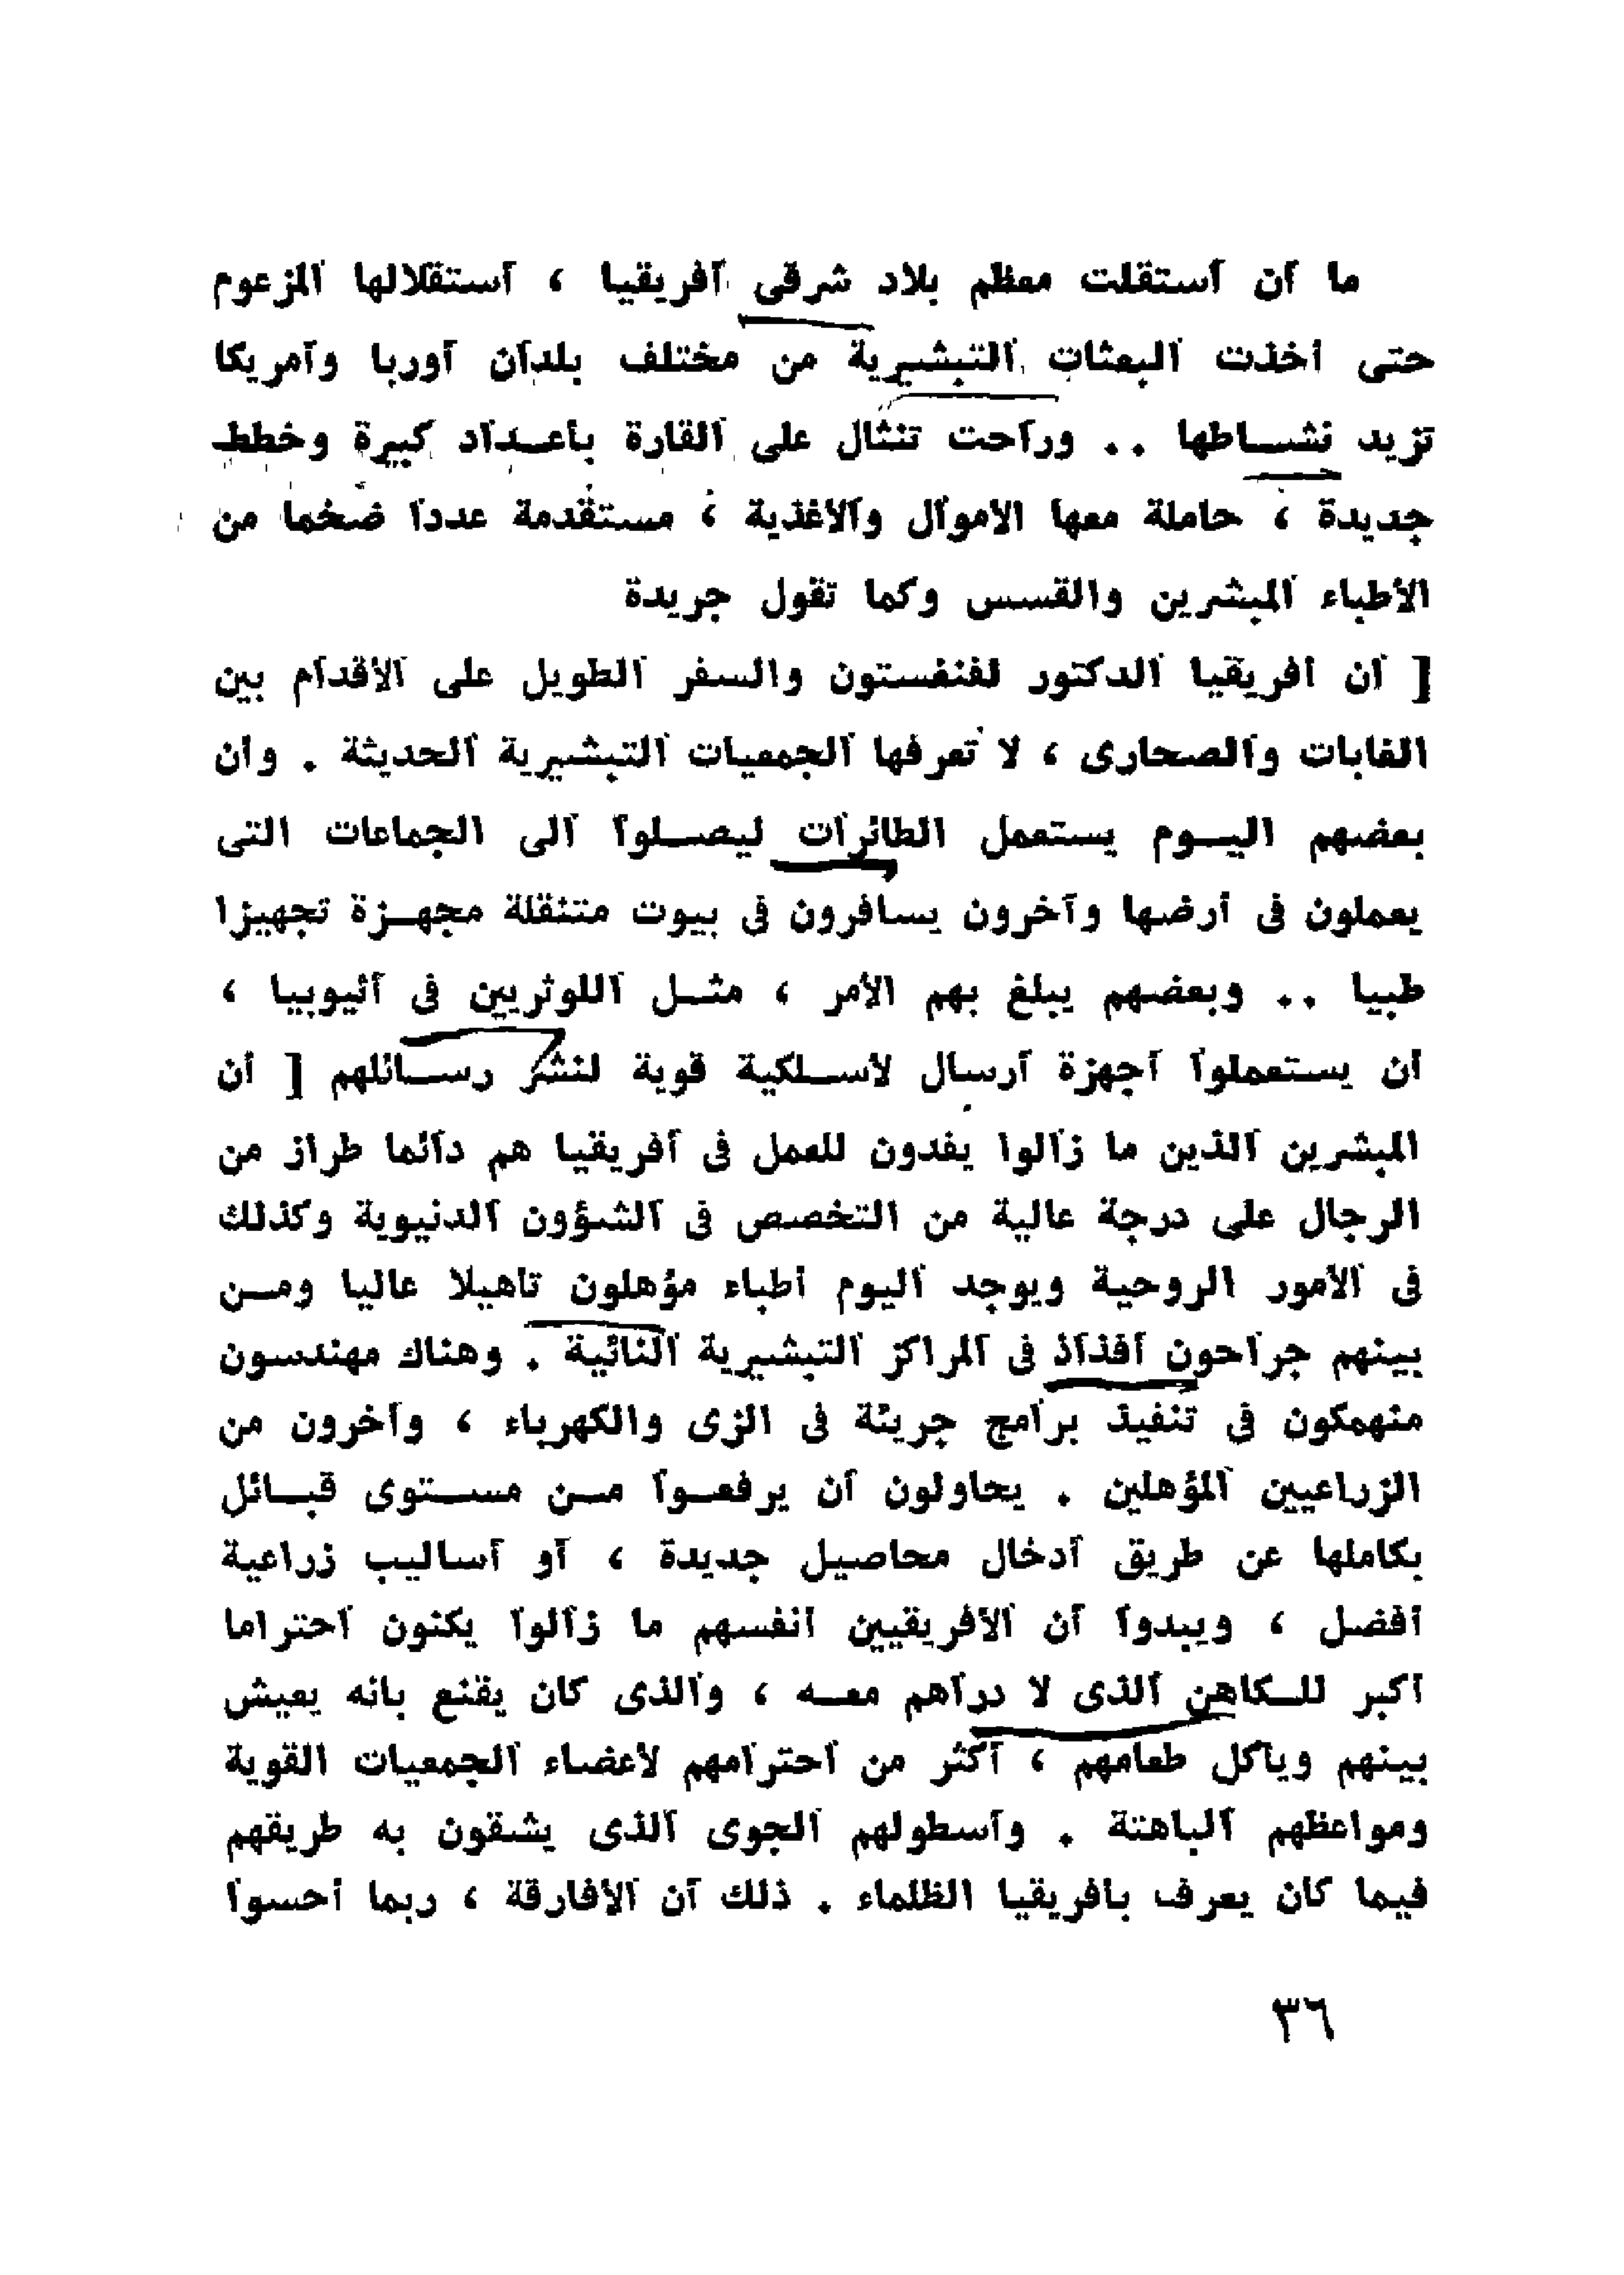 ما أن أستقلت معظم بلاد شرقى أفريقيا ، أستقلالها المزعوم
حتى أخذت البعثات التبشيرية من مختلف بلدان أوربا وأمريكا
تزيد نشــاطها .. وراحت تنثال على القارة بأعــداد كبيرة وخطط
جديدة ، حاملة معها الأموال والأغذية ، مستقدمة عددا ضخما من
الأطباء المبشرين والقسس وكما تقول جريدة
[ أن أفريقيا الدكتور لفنفستون والسفر الطويل على الأقدام بين
الغابات والصحارى ، لا تعرفها الجمعيات التبشيرية الحديثة . وأن
بعضهم اليــوم يستعمل الطائرات ليصــلوا ألى الجماعات التى
يعملون فى أرضها وآخرون يسافرون فى بيوت متنقلة مجهــزة تجهيزا
طبيا .. وبعضهم يبلغ بهم الأمر ، مثــل اللوثريين فى أثيوبيا ،
أن يستعملوا أجهزة أرسال لاســلكية قوية لنشر رســائلهم [ أن
المبشرين الذين ما زالوا يفدون للعمل فى أفريقيا هم دائما طراز من
الرجال على درجة عالية من التخصص فى الشؤون الدنيوية وكذلك
فى الأمور الروحية ويوجد اليوم أطباء مؤهلون تأهيلا عاليا ومــن
بينهم جراحون أفذاذ فى المراكز التبشيرية النائية . وهناك مهندسون
منهمكون فى تنفيذ برامج جريئة فى الزى والكهرباء ، وآخرون من
الزراعيين المؤهلين . يحاولون أن يرفعــوا مــن مســتوى قبــائل
بكاملها عن طريق أدخال محاصيل جديدة ، أو أساليب زراعية
أفضل ، ويبدوا أن الأفريقيين أنفسهم ما زالوا يكنون أحتراما
أكبر للــكاهن الذى لا دراهم معــه ، والذى كان يقنع بأنه يعيش
بينهم ويأكل طعامهم ، أكثر من أحترامهم لأعضاء الجمعيات القوية
ومواعظهم الباهتة . وأسطولهم الجوى الذى يشقون به طريقهم
فيما كان يعرف بأفريقيا الظلماء . ذلك أن الأفارقة ، ربما أحسوا
٣٦